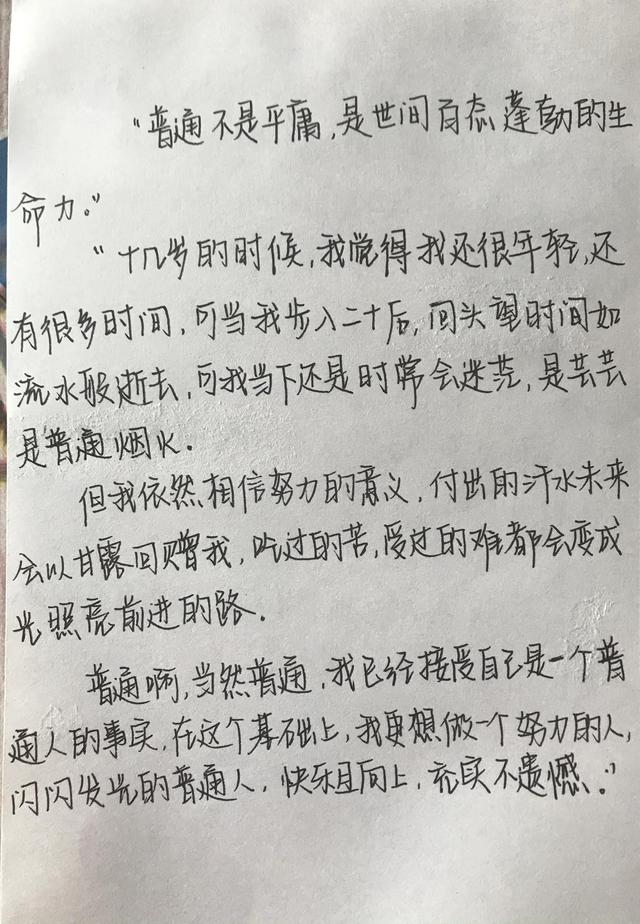 “普通不是平庸,是世间百态蓬勃的生
命力。”
“十几岁的时候,我觉得我还很年轻,还
有很多时间,可当我步入二十后,回头望时间如
流水般逝去,可我当下还是时常会迷茫,是芸芸
是普通烟火.
但我依然相信努力的意义,付出的汗水未来
会以甘露回赠我,吃过的苦,受过的难都会变成
光照亮前进的路.
普通啊,当然普通,我已经接受自己是一个普
通人的事实,在这个基础上,我更想做一个努力的人,
闪闪发光的普通人,快乐且向上,充实不遗憾.”